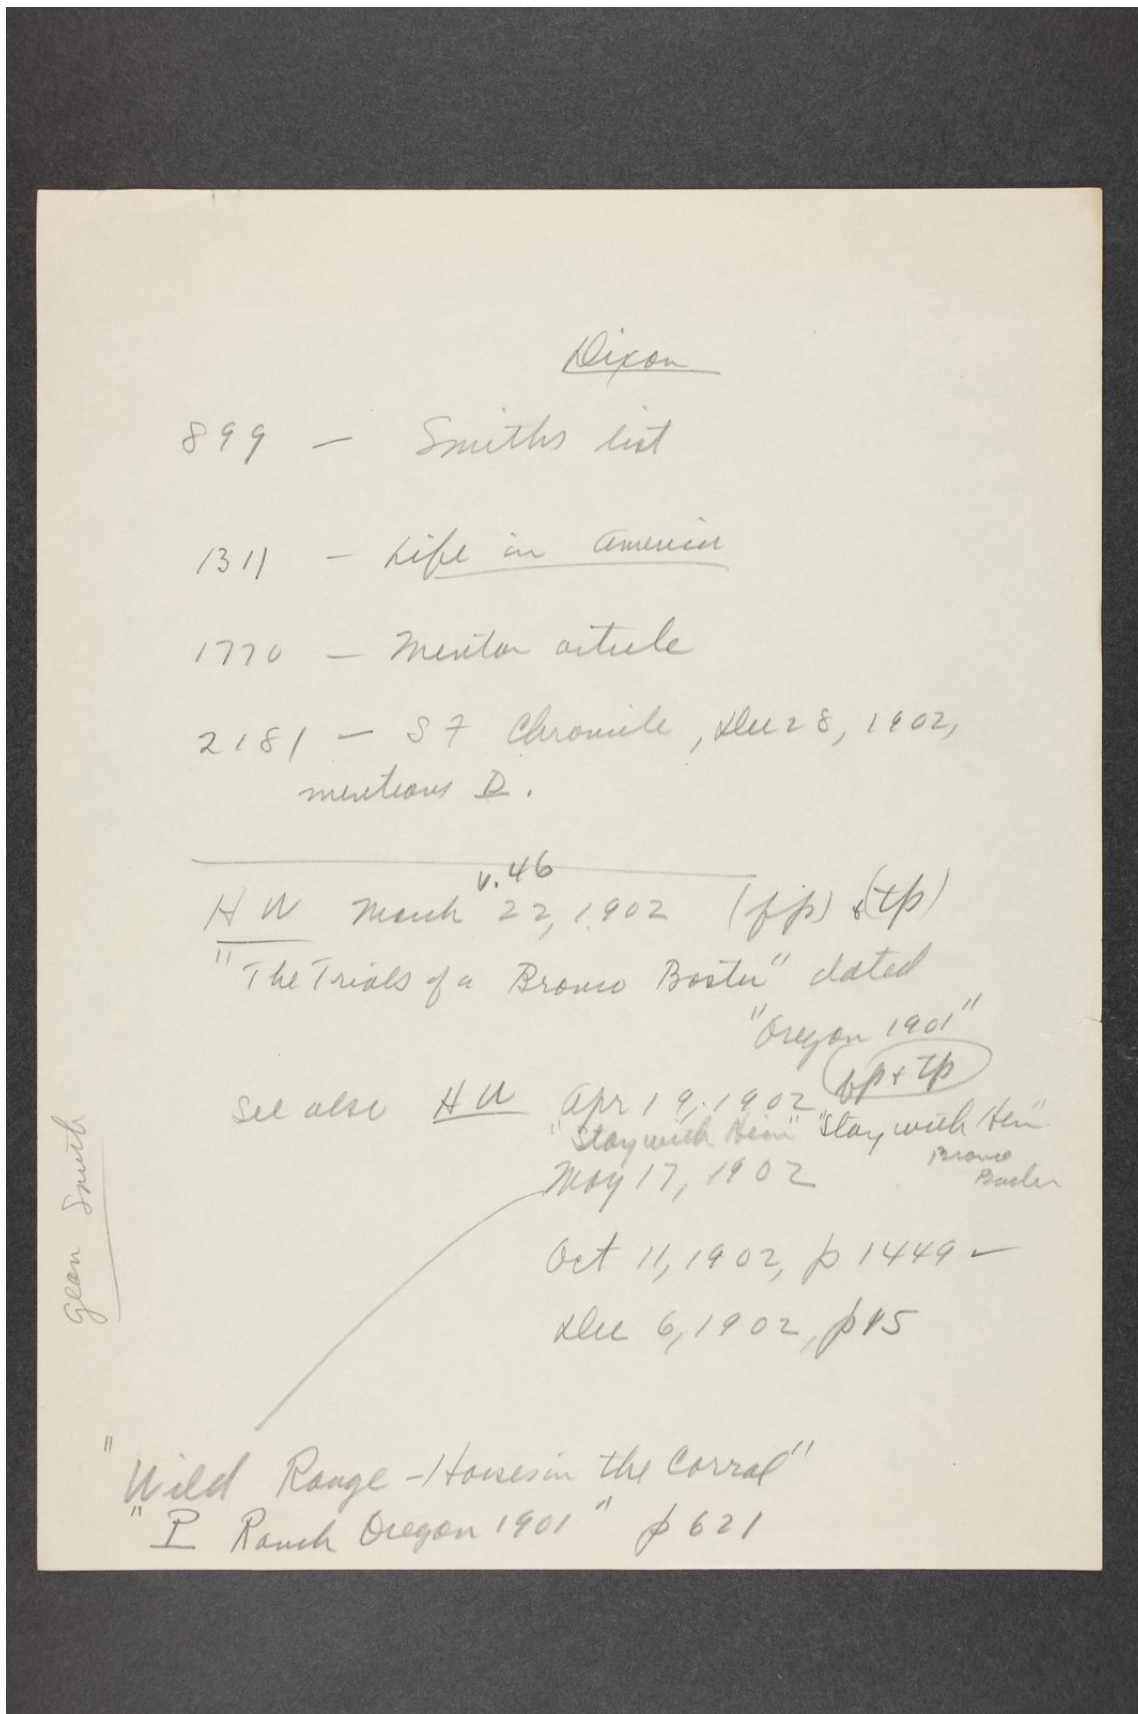 Dixon
899 — Smiths list
1311 — Life in America
1770 — Mentor article
2181 — S F Chronicle, Dec 28, 1902,
mentions D.
v. 46
H W March 22, 1902 (fp) & (tp)
"The Trials of a Bronco Buster" dated
"Oregon 1901"
See also H W Apr 19, 1902 bp + tp
"Stay with Him" "Stay with Him"
Bronco
Buster
May 17, 1902
Oct 11, 1902, p 1449 ✓
Dec 6, 1902, p 15
Glean Smith
"Wild Range-Horses in the Corral"
"P Ranch Oregon 1901" p 621